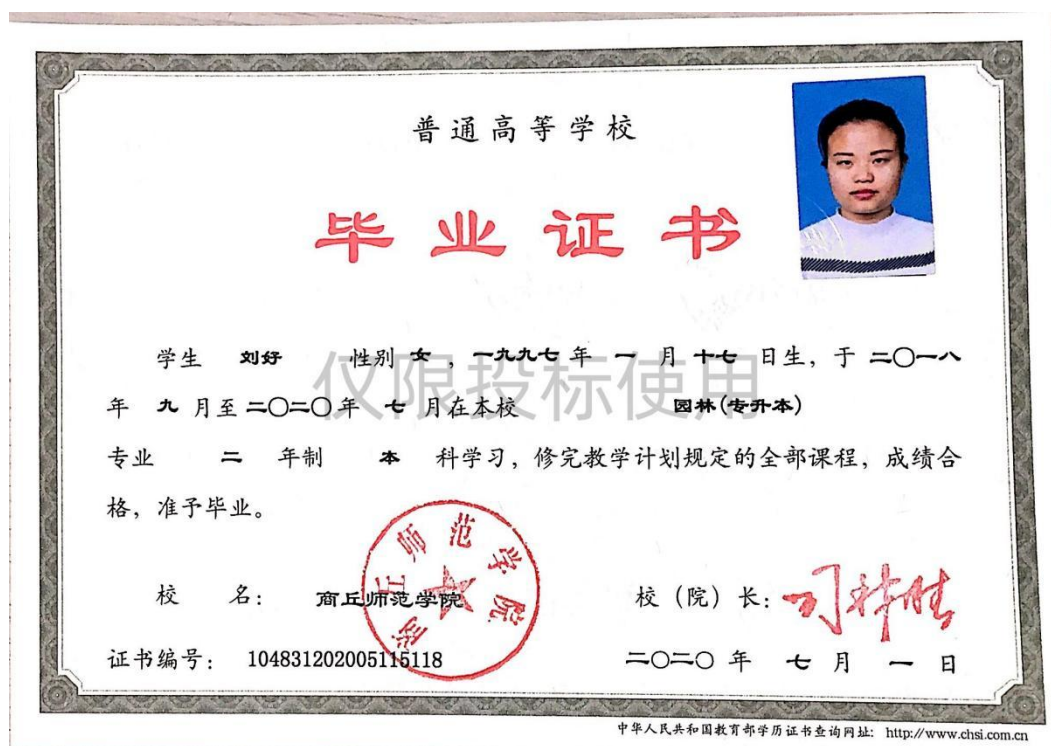 普通高等学校
毕业证书
学生 刘好 性别 女，一九九七 年 一 月 十七 日生，于 二〇一八
年 九 月至 二〇二〇 年 七 月在本校 园林(专升本)
专业 二 年制 本 科学习，修完教学计划规定的全部课程，成绩合
格，准予毕业。
仅限投标使用
商丘师范学院
校 名： 商丘师范学院 校（院）长：
证书编号： 104831202005115118 二〇二〇 年 七 月 一 日
中华人民共和国教育部学历证书查询网址： http://www.chsi.com.cn